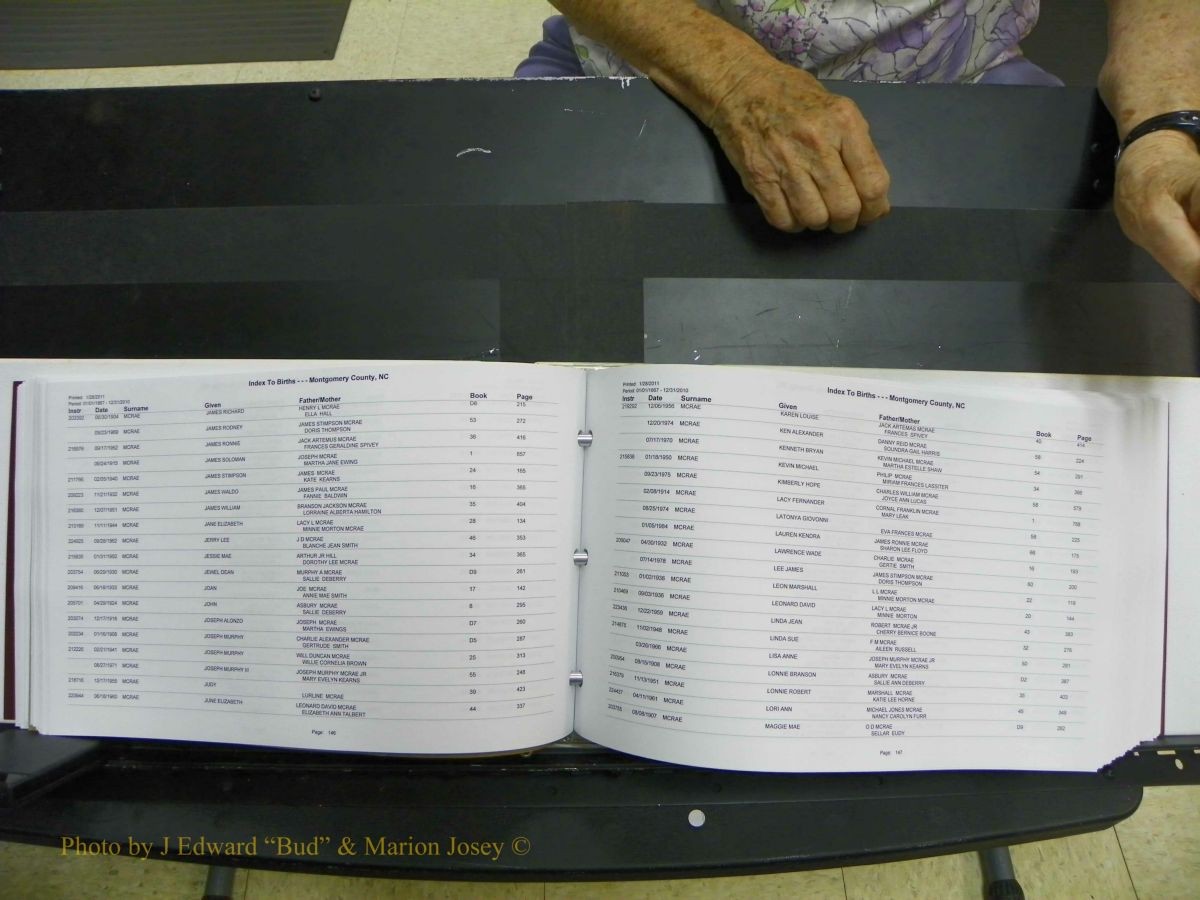 Index To Births - - - Montgomery County, NC
Printed 1/28/2011
Period 01/01/1867 - 12/31/2010
Instr Date Surname Given Father/Mother Book Page
MCRAE JAMES RICHARD HENRY L MCRAE D8 215
ELLA HALL
MCRAE JAMES RODNEY JAMES STIMPSON MCRAE 53 272
DORIS THOMPSON
MCRAE JAMES RONNIE JACK ARTEMUS MCRAE 36 416
FRANCES GERALDINE SPIVEY
MCRAE JAMES SOLOMAN JOSEPH MCRAE 1 857
MARTHA JANE EWING
MCRAE JAMES STIMPSON JAMES MCRAE 24 165
KATE KEARNS
MCRAE JAMES WALDO JAMES PAUL MCRAE 16 365
FANNIE BALDWIN
MCRAE JAMES WILLIAM BRANSON JACKSON MCRAE 35 404
LORRAINE ALBERTA HAMILTON
MCRAE JANE ELIZABETH LACY L MCRAE 28 134
MINNIE MORTON MCRAE
MCRAE JERRY LEE J D MCRAE 46 353
BLANCHE JEAN SMITH
MCRAE JESSIE MAE ARTHUR JR HILL 34 365
DOROTHY LEE MCRAE
MCRAE JEWEL DEAN MURPHY A MCRAE D9 261
SALLIE DEBERRY
MCRAE JOAN JOE MCRAE 17 142
ANNIE MAE SMITH
MCRAE JOHN ASBURY MCRAE 8 295
SALLIE DEBERRY
MCRAE JOSEPH ALONZO JOSEPH MCRAE D7 260
MARTHA EWINGS
MCRAE JOSEPH MURPHY CHARLIE ALEXANDER MCRAE D5 287
GERTRUDE SMITH
MCRAE JOSEPH MURPHY WILL DUNCAN MCRAE 25 313
WILLIE CORNELIA BROWN
MCRAE JOSEPH MURPHY III JOSEPH MURPHY MCRAE JR 55 248
MARY EVELYN KEARNS
MCRAE JUDY LURLINE MCRAE 39 423
MCRAE JUNE ELIZABETH LEONARD DAVID MCRAE 44 337
ELIZABETH ANN TALBERT
Page: 146
Printed 1/28/2011
Period 01/01/1867 - 12/31/2010
Index To Births - - - Montgomery County, NC
Instr Date Surname Given Father/Mother Book Page
219292 12/06/1956 MCRAE KAREN LOUISE JACK ARTEMAS MCRAE 40 414
FRANCES SPIVEY
12/20/1974 MCRAE KEN ALEXANDER DANNY REID MCRAE 58 224
SOUNDRA GAIL HARRIS
07/17/1970 MCRAE KENNETH BRYAN KEVIN MICHAEL MCRAE 54 291
MARTHA ESTELLE SHAW
01/18/1950 MCRAE KEVIN MICHAEL PHILIP MCRAE 34
MIRIAM FRANCES LASSITER
09/23/1975 MCRAE KIMBERLY HOPE CHARLES WILLIAM MCRAE 58 579
JOYCE ANN LUCAS
02/08/1914 MCRAE LACY FERNANDER CORNAL FRANKLIN MCRAE 1 788
MARY LEAK
08/25/1974 MCRAE LATONYA GIOVONNI EVA FRANCES MCRAE 58 225
01/05/1984 MCRAE LAUREN KENDRA JAMES RONNIE MCRAE 66 175
SHARON LEE FLOYD
04/30/1932 MCRAE LAWRENCE WADE CHARLIE MCRAE 16 193
GERTIE SMITH
07/14/1978 MCRAE LEE JAMES JAMES STIMPSON MCRAE 60 200
DORIS THOMPSON
01/02/1936 MCRAE LEON MARSHALL L L MCRAE 22 119
MINNIE MORTON MCRAE
09/03/1936 MCRAE LEONARD DAVID LACY L MCRAE 20 144
MINNIE MORTON
12/22/1959 MCRAE LINDA JEAN ROBERT MCRAE JR 43 383
CHERRY BERNICE BOONE
11/02/1948 MCRAE LINDA SUE F M MCRAE 32 276
AILEEN RUSSELL
03/20/1966 MCRAE LISA ANNE JOSEPH MURPHY MCRAE JR 50 281
MARY EVELYN KEARNS
MCRAE LONNIE BRANSON ASBURY MCRAE D2 387
SALLIE ANN DEBERRY
11/13/1951 MCRAE LONNIE ROBERT MARSHALL MCRAE 35 403
KATIE LEE HORNE
04/11/1961 MCRAE LORI ANN MICHAEL JONES MCRAE 45 348
NANCY CAROLYN FURR
MCRAE MAGGIE MAE O D MCRAE D9 262
SELLAR EUDY
Page: 147
Photo by J Edward “Bud” & Marion Josey ©